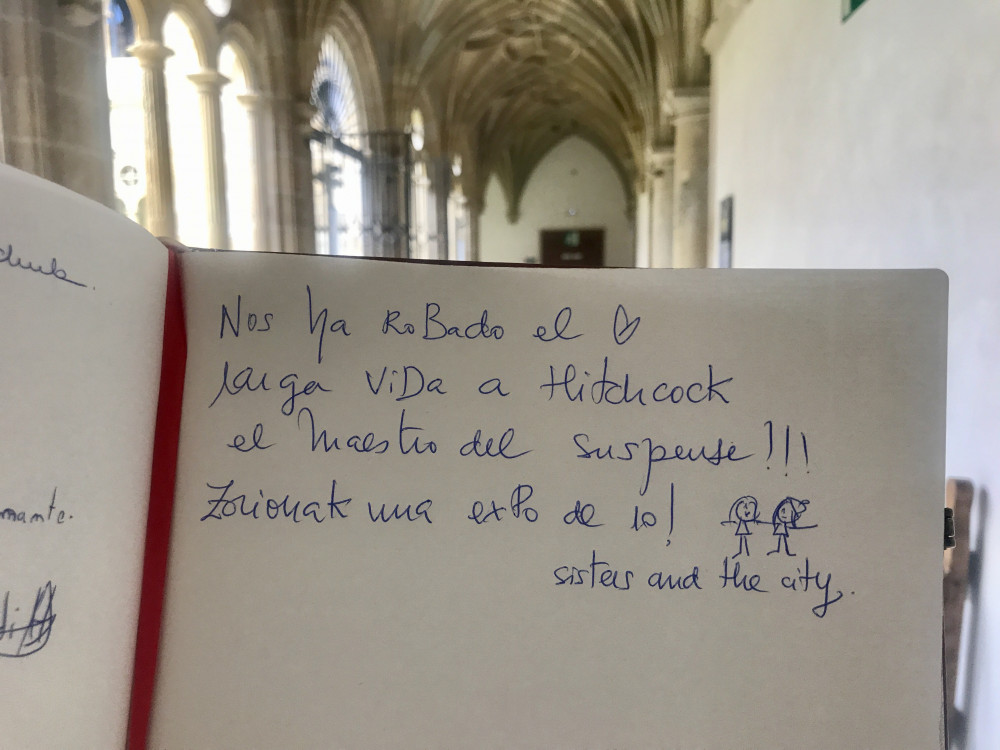 Nos ha RoBado el
larga ViDa a Hitchcock
el Maestro del suspense!!!
Zorionak una exPo de 10!
sisters and the city.
mante.